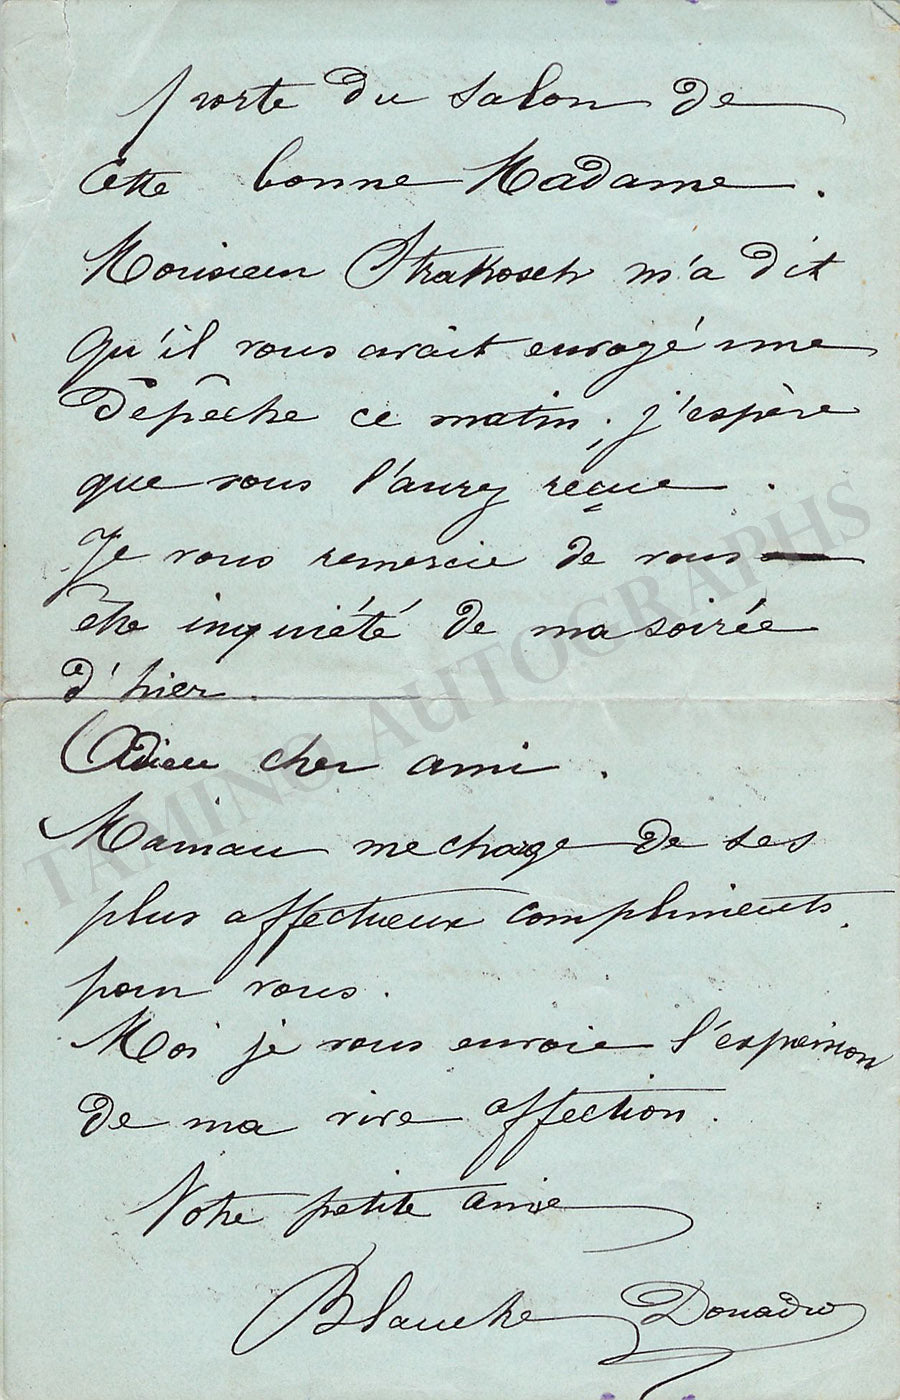 porte du salon de
cette bonne Madame.
Monsieur Strakosch m'a dit
qu'il vous avait envoyé une
dépêche ce matin; j'espère
que vous l'aurez reçue.
Je vous remercie de vous
être inquiété de ma soirée
d'hier.
Adieu cher ami.
Maman me charge de ses
plus affectueux compliments
pour vous.
Moi je vous envoie l'expression
de ma vive affection.
Votre petite amie
Blanche Donadio
TAMINO AUTOGRAPHS